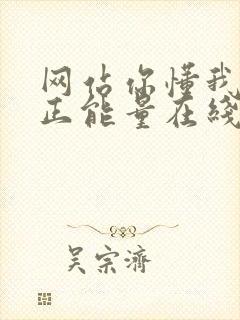 网站你懂我
正能量在线
吴宗济